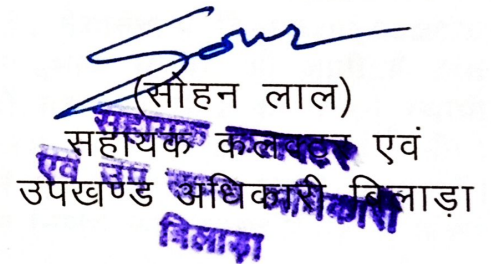 (सोहन लाल)
सहायक कलक्टर एवं
उपखण्ड अधिकारी बिलाड़ा
सहायक कलक्टर
एवं उप खण्ड अधिकारी
बिलाड़ा